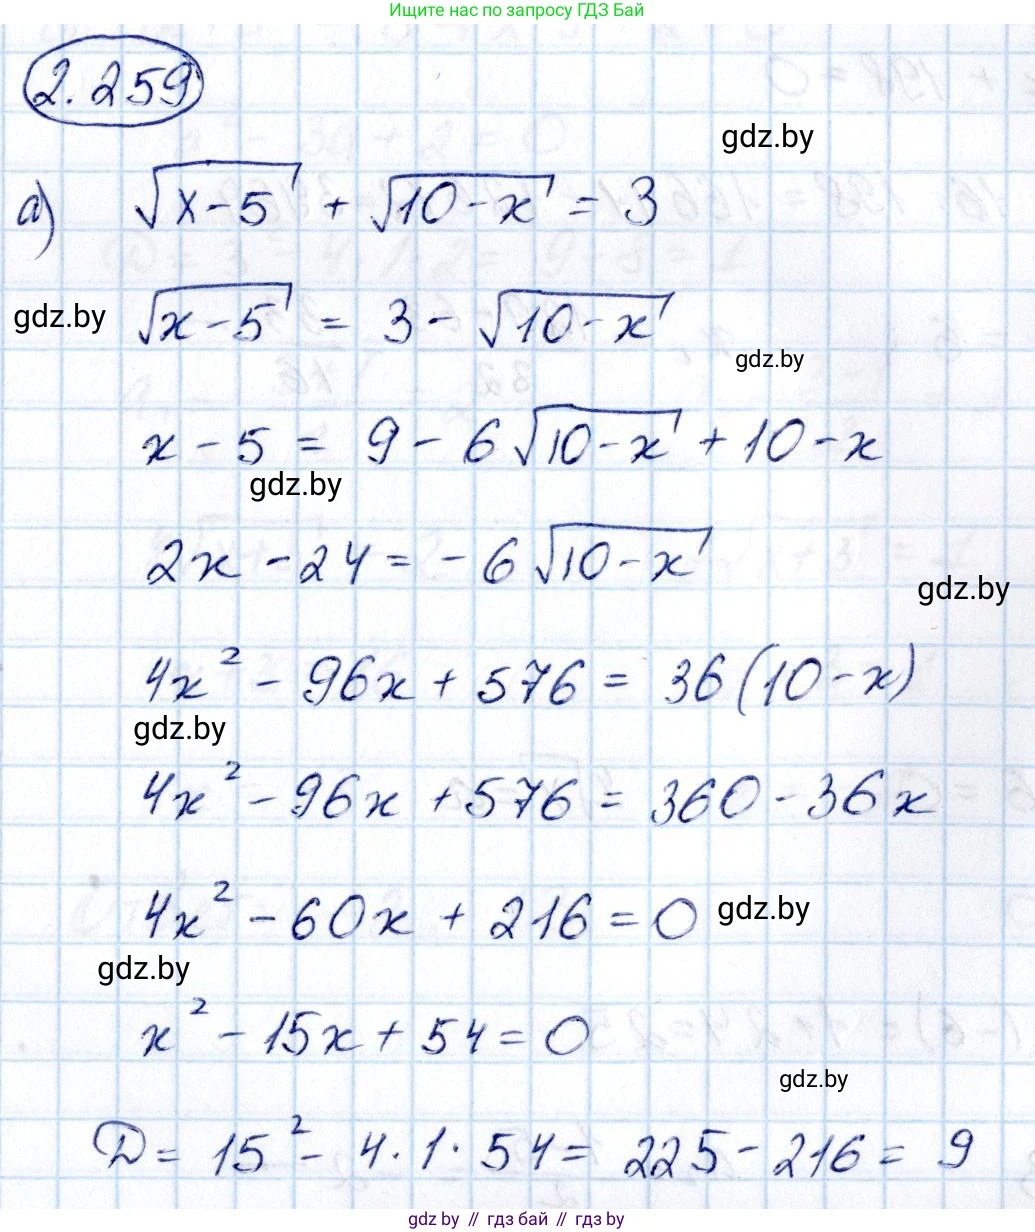 Ищите нас по запросу ГДЗ Бай
2.259
gdz.by
а) √(x-5) + √(10-x) = 3
gdz.by
√(x-5) = 3 - √(10-x)
gdz.by
x - 5 = 9 - 6√(10-x) + 10 - x
gdz.by
2x - 24 = - 6√(10-x)
gdz.by
4x² - 96x + 576 = 36(10-x)
gdz.by
4x² - 96x + 576 = 360 - 36x
4x² - 60x + 216 = 0
gdz.by
gdz.by
x² - 15x + 54 = 0
gdz.by
D = 15² - 4·1·54 = 225 - 216 = 9
gdz by // гдз бай // гдз by